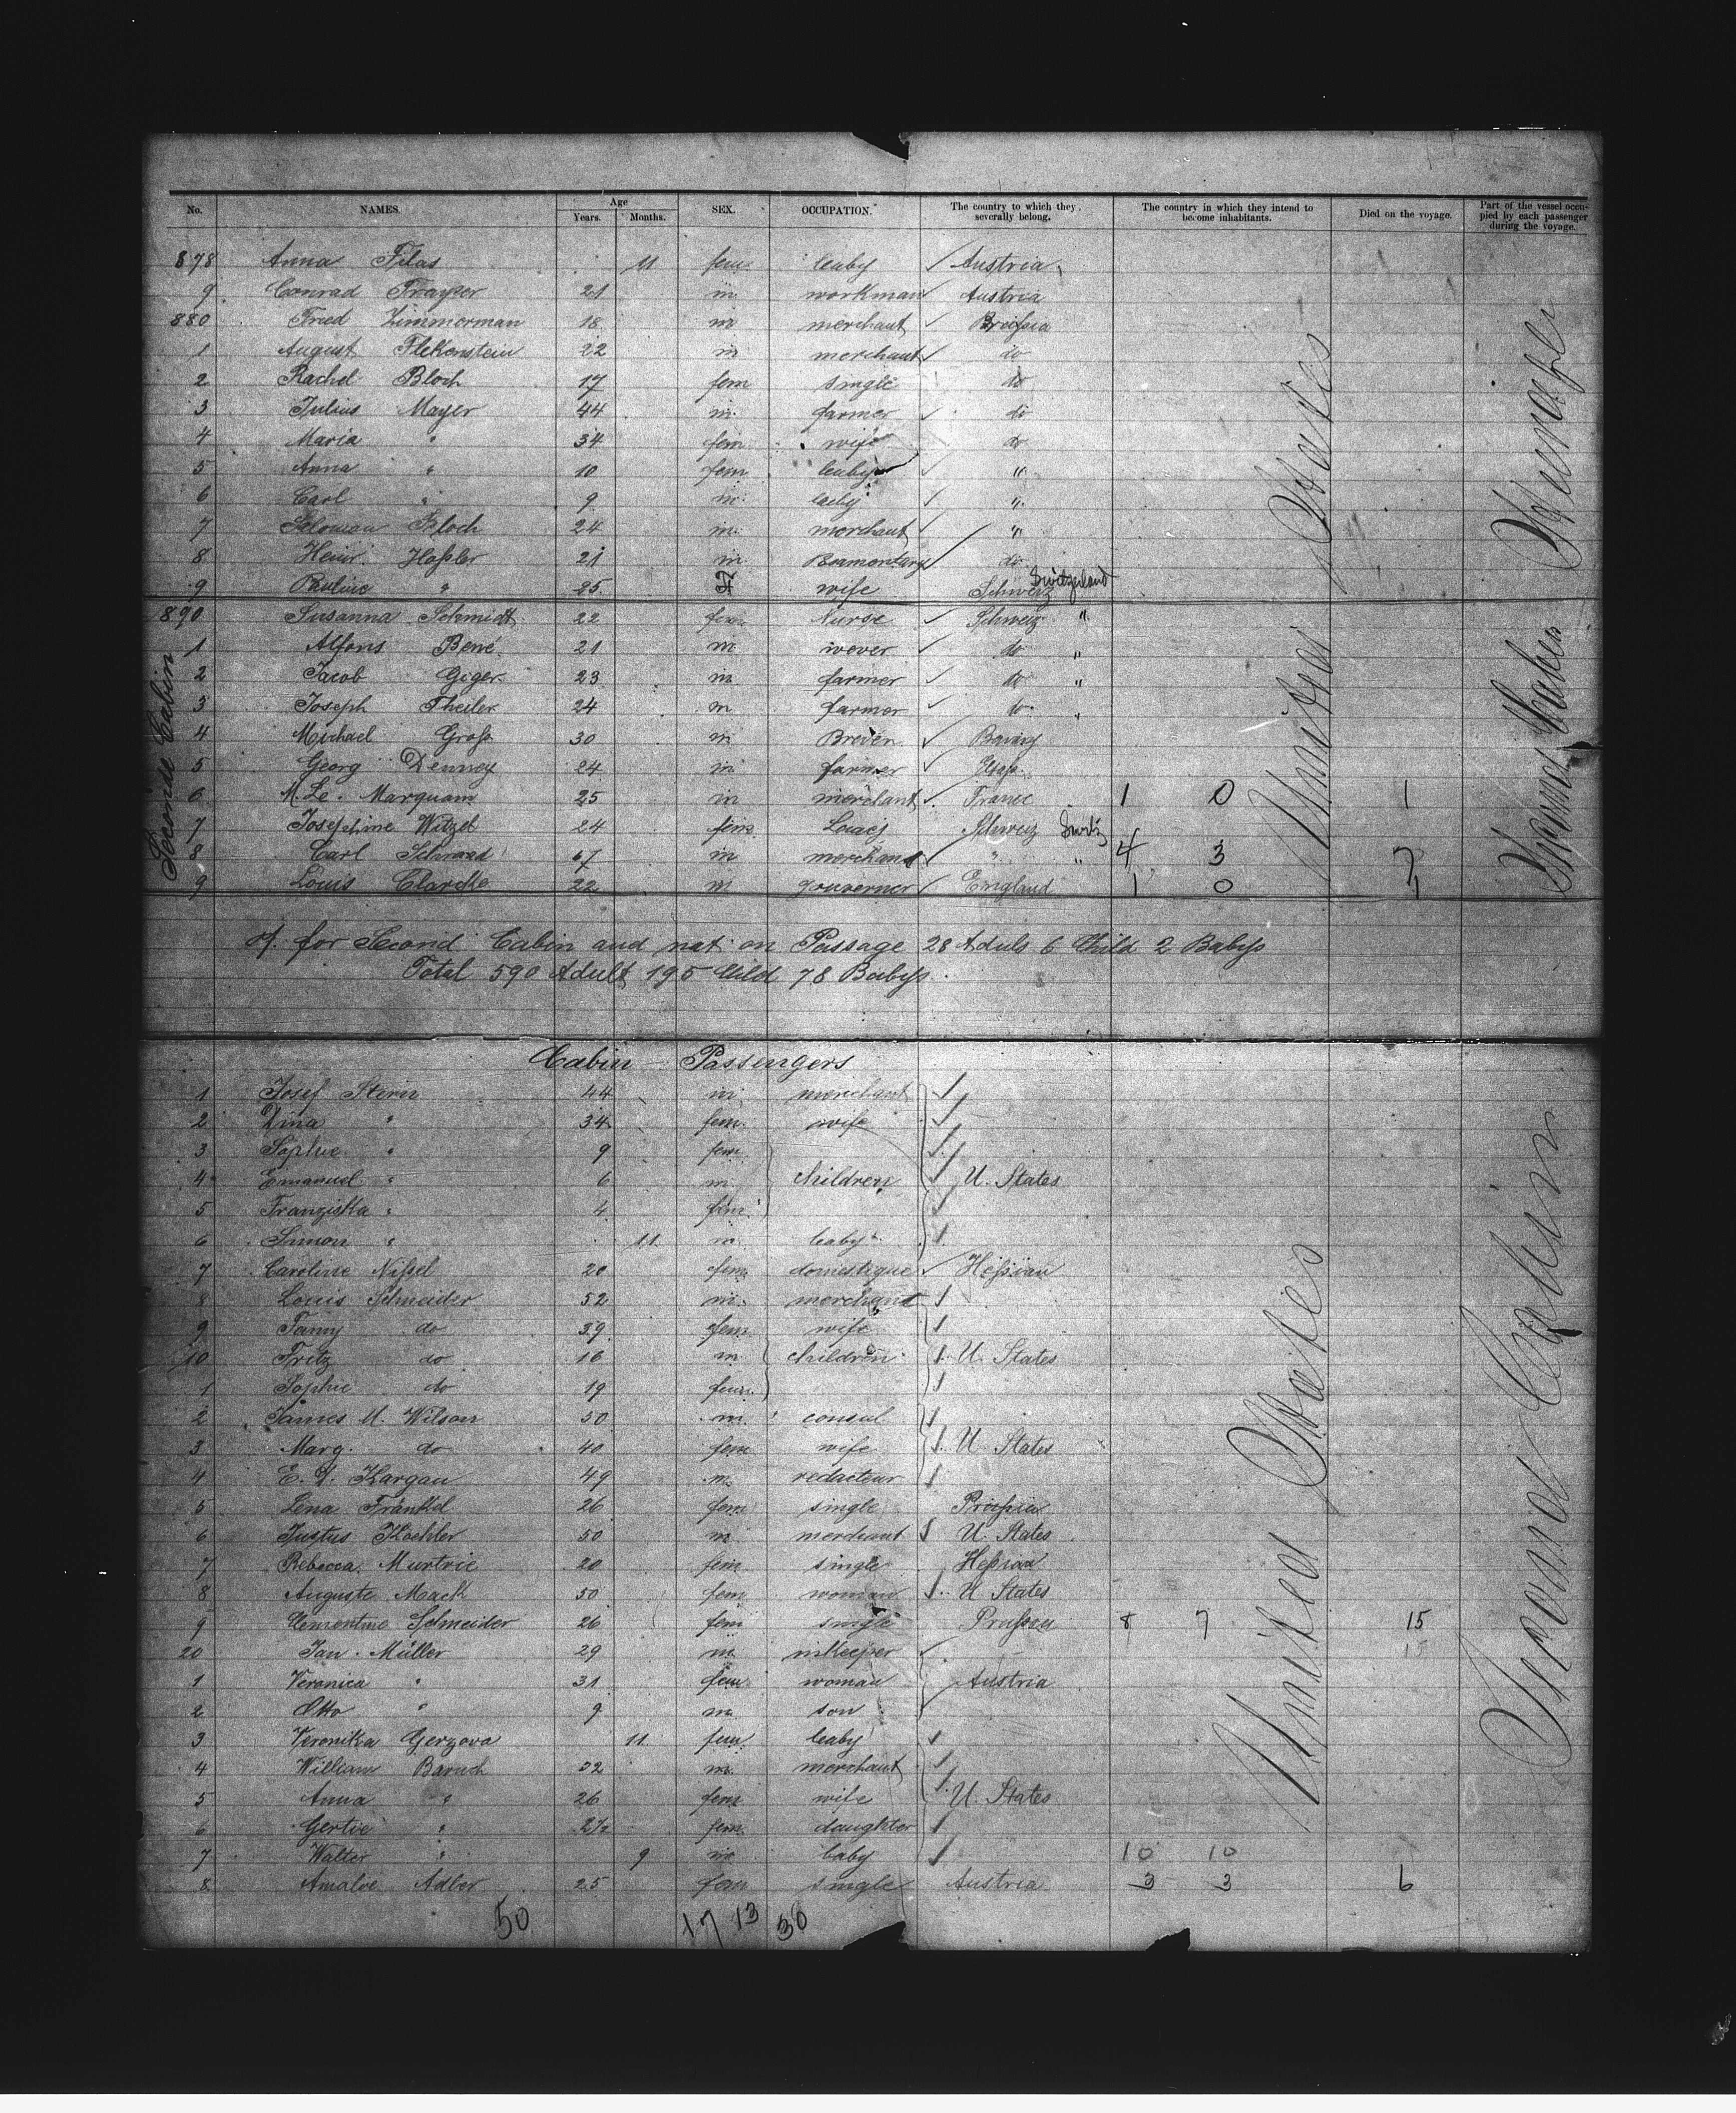 No. NAMES. Age Years. Months. SEX. OCCUPATION. The country to which they severally belong. The country in which they intend to become inhabitants. Died on the voyage. Part of the vessel occupied by each passenger during the voyage.
878 Anna Filas 11 fem leaby Austria
9 Conrad 21 m workman Austria
880 Fried Zimmerman 18 m merchant Preußia
1 August Flekenstein 22 m merchant do
2 Rachel Bloch 17 fem single do
3 Julius Mayer 44 m farmer do
4 Maria " 34 fem wife do
5 Anna " 10 fem leaby "
6 Carl " 9 m leaby "
7 Bloch 24 m merchant "
8 Heinr. Haßler 21 m do
9 Pauline " 25 wife Schweiz Switzerland
890 Susanna Schmidt 22 fem Nurse Schweiz "
1 Alfons Bené 21 m wever do "
2 Jacob Giger 23 m farmer do "
3 Joseph Theiler 24 m farmer do "
4 Michael Groß 30 m
5 Georg Denney 24 m farmer
6 M. Le. Marquam 25 m merchant France 1 0 1
7 Josephine Witzel 24 fem Schweiz Switz
8 Carl 67 m merchand " " 4 3 7
9 Louis Clarcke 22 m gouverner England 1 0 1
Seconde Cabin
United States
Steerage
Second Cabin
of. for Second Cabin and nat on Passage 28 Aduls 6 Child 2 Babyß
Total 590 Adult 195 Child 78 Babyß.
Cabin Passengers
1 Josef Stern 44 m merchant
2 Dina " 34 fem wife
3 Sophie " 9 fem
4 Emanuel " 6 m children U. States
5 Franziska " 4 fem
6 Simon " 11 m leaby
7 Caroline Nißel 20 fem domestique Heßian
8 Louis Schneider 52 m merchant
9 Fanny do 39 fem wife
10 Fritz do 16 m children U. States
1 Sophie do 19 fem
2 James M. Wilson 50 m consul
3 Marg. do 40 fem wife U. States
4 E. D. Kargau 49 m redacteur
5 Lena Fränkel 26 fem single Preußia
6 Justus Koehler 50 m merchant U. States
7 Rebecca Murtrie 20 fem single Heßian
8 Auguste Mack 50 fem woman U States
9 Clementine Schneider 26 fem single Prußia 8 7 15
15
20 Jan. Müller 29 m inkeeper
1 Veronica " 31 fem woman Austria
2 Otto " 9 m son
3 Veronika Gerzova 11 fem leaby
4 William Baruch 32 m merchant
5 Anna " 26 fem wife U. States
6 Gertie " 2½ fem daughter
7 Walter " 9 m baby 10 10
8 Amalie Adler 25 fem single Austria 3 3 6
50 17 13 30
United States
Cabin